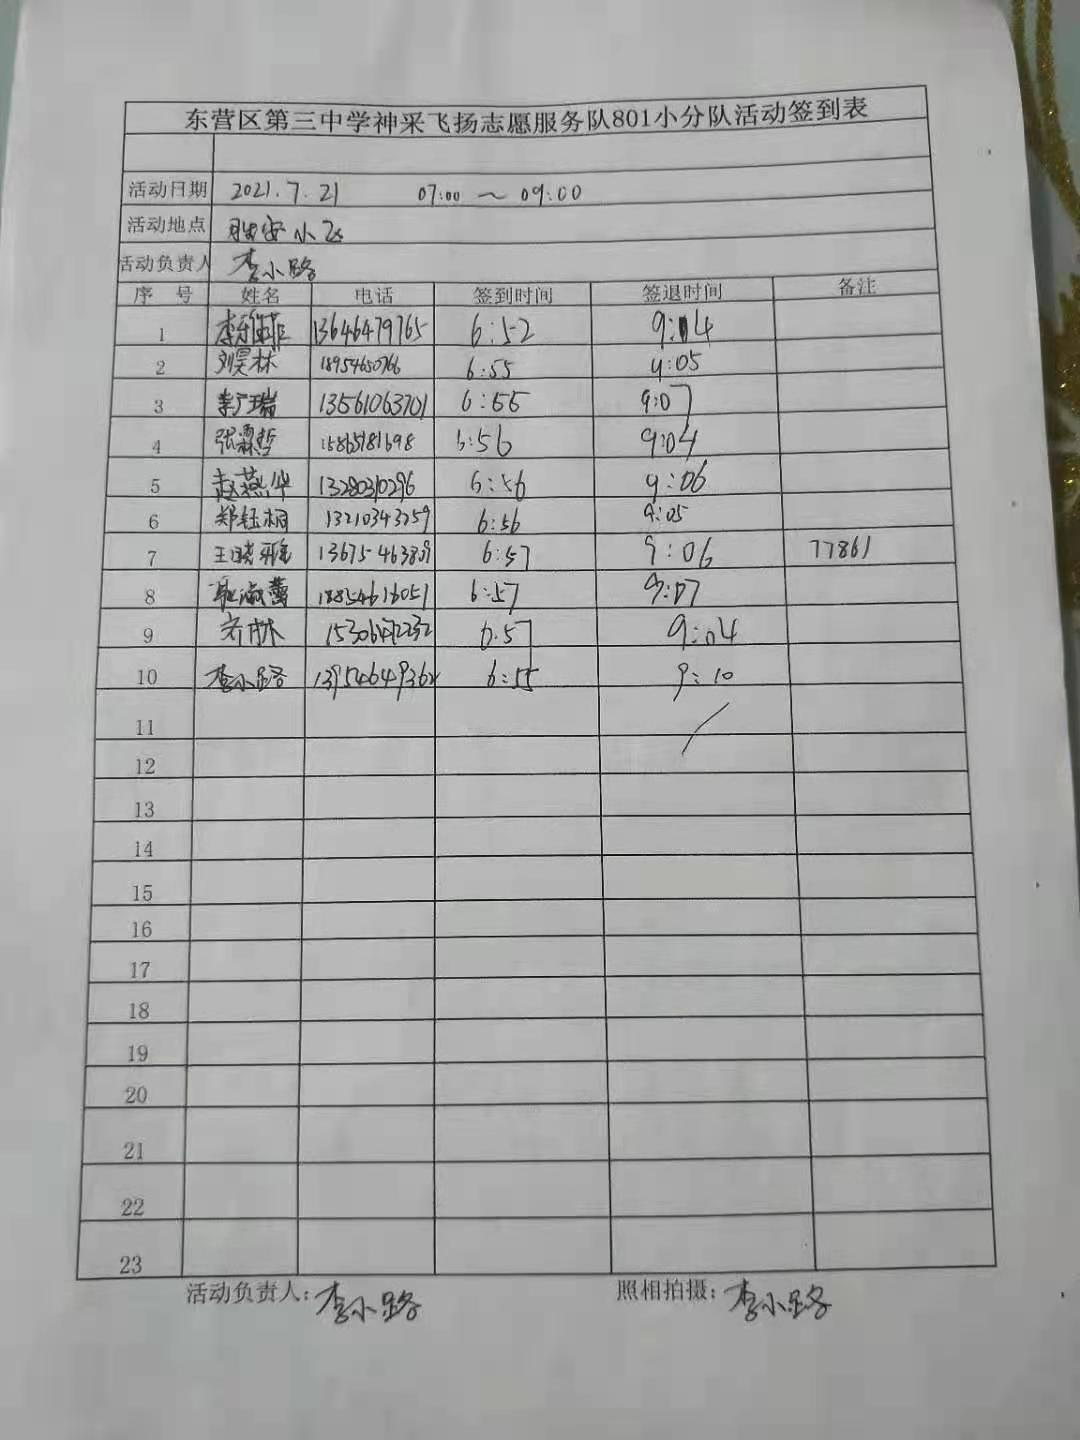 东营区第三中学神采飞扬志愿服务队801小分队活动签到表
活动日期 2021.7.21 07:00 ~ 09:00
活动地点 胜安小区
活动负责人 李小路
序号 姓名 电话 签到时间 签退时间 备注
1 李雅菲 13646479765 6:52 9:04
2 刘昊林 18954650766 6:55 9:05
3 李广瑞 13561063701 6:55 9:07
4 张霖哲 15865781698 6:56 9:04
5 赵燕华 13280310296 6:56 9:06
6 郑钰桐 13210343259 6:56 9:05
7 王晓雅 13675463809 6:57 9:06 77861
8 耿淑蕾 18854616051 6:57 9:07
9 6:57 9:04
10 李小路 13954649362 6:55 9:10
11
12
13
14
15
16
17
18
19
20
21
22
23
活动负责人：李小路 照相拍摄：李小路